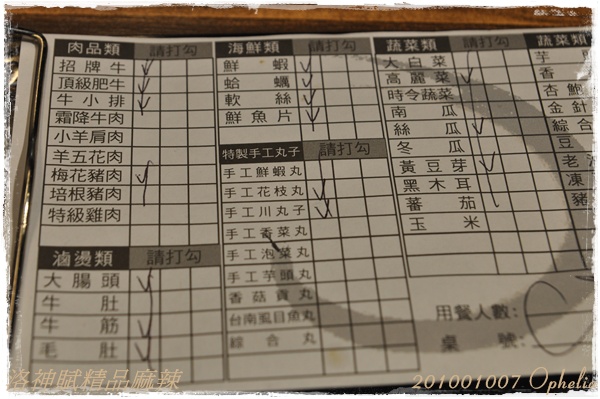 肉品類 請打勾
招牌牛
頂級肥牛
牛小排
霜降牛肉
小羊肩肉
羊五花肉
梅花豬肉
培根豬肉
特級雞肉
滷燙類 請打勾
大腸頭
牛肚
牛筋
毛肚
海鮮類 請打勾
鮮蝦
蛤蠣
軟絲
鮮魚片
特製手工丸子 請打勾
手工鮮蝦丸
手工花枝丸
手工川丸子
手工香菜丸
手工泡菜丸
手工芋頭丸
香菇貢丸
台南虱目魚丸
綜合丸
蔬菜類 請打勾
大白菜
高麗菜
時令蔬菜
南瓜
絲瓜
冬瓜
黃豆芽
黑木耳
蕃茄
玉米
蔬菜類
芋
香
杏鮑
金針
綜合
豆
老
凍
豬
用餐人數:
桌號:
洛神賦精品麻辣
201001007 Ophelia